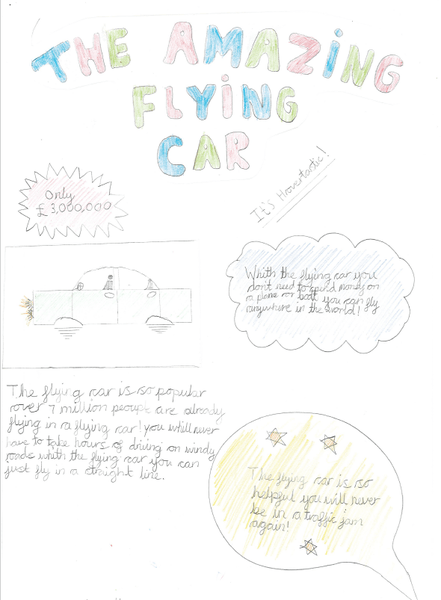 THE AMAZING
FLYING
CAR
It's Hovertastic!
Only
£3,000,000
Whith the flying car you
dont need to spend money on
a plane or boat you can fly
anywhere in the world!
The flying car is so popular
over 7 million peoupl are already
flying in a flying car! you will never
have to take hours of driving on windy
roads whith the flying car you can
just fly in a straight line.
The flying car is so
helpful you will never
be in a traffic jam
again!